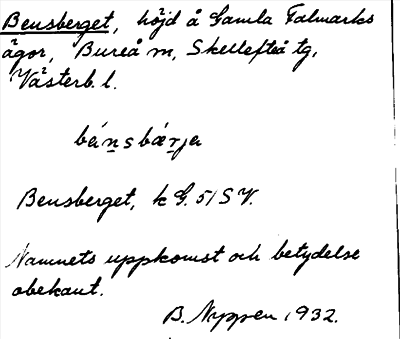 Bensberget, höjd å Gamla Falmarks
ägor, Bureå m, Skellefteå tg,
Västerb. l.
bénsbærja
Bensberget, k G. 51 S V.
Namnets uppkomst och betydelse
obekant.
B. Nyppen 1932.